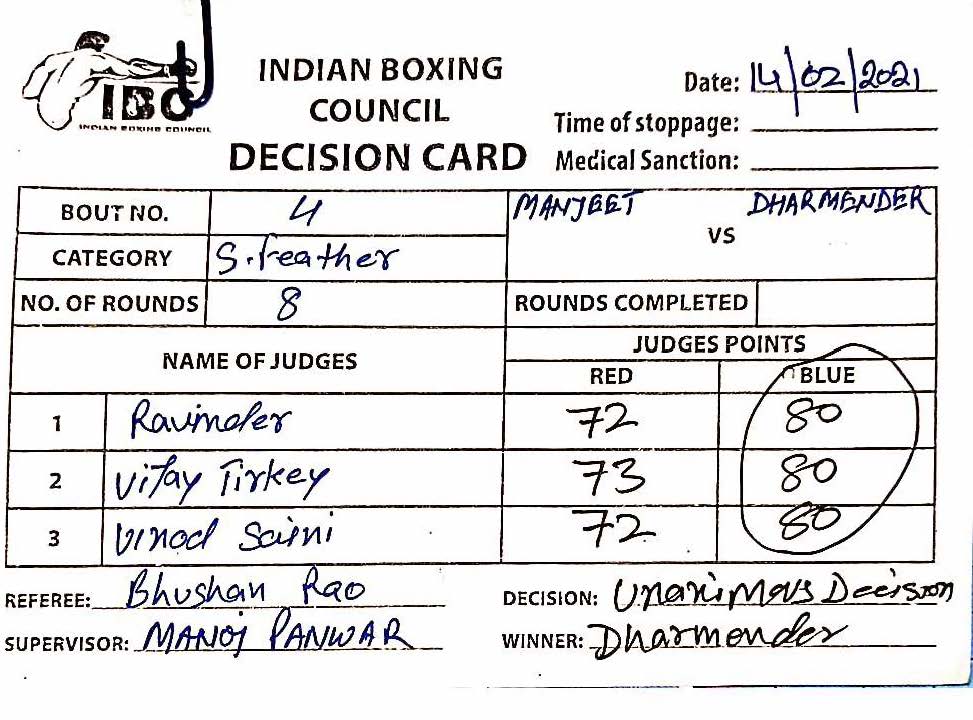 IBC
INDIAN BOXING COUNCIL
INDIAN BOXING
COUNCIL
DECISION CARD
Date: 14/02/2021
Time of stoppage:
Medical Sanction:
BOUT NO. 4
MANJEET VS DHARMENDER
CATEGORY S.Feather
NO. OF ROUNDS 8
ROUNDS COMPLETED
NAME OF JUDGES
JUDGES POINTS
RED BLUE
1 Ravinder 72 80
2 Vijay Tirkey 73 80
3 Vinod Saini 72 80
REFEREE: Bhushan Rao
DECISION: Unanimous Decision
SUPERVISOR: MANOJ PANWAR
WINNER: Dharmender